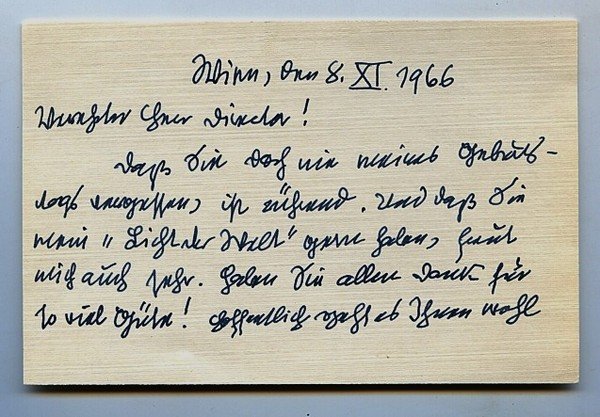 Wien, den 8. XI. 1966
Verehrter Herr Director!
Daß Sie doch nie meines Geburts-
tags vergessen, ist rührend. Und daß Sie
mein "Licht der Welt" gern haben, freut
mich auch sehr. Haben Sie allen Dank für
so viel Güte! Hoffentlich geht es Ihnen wohl